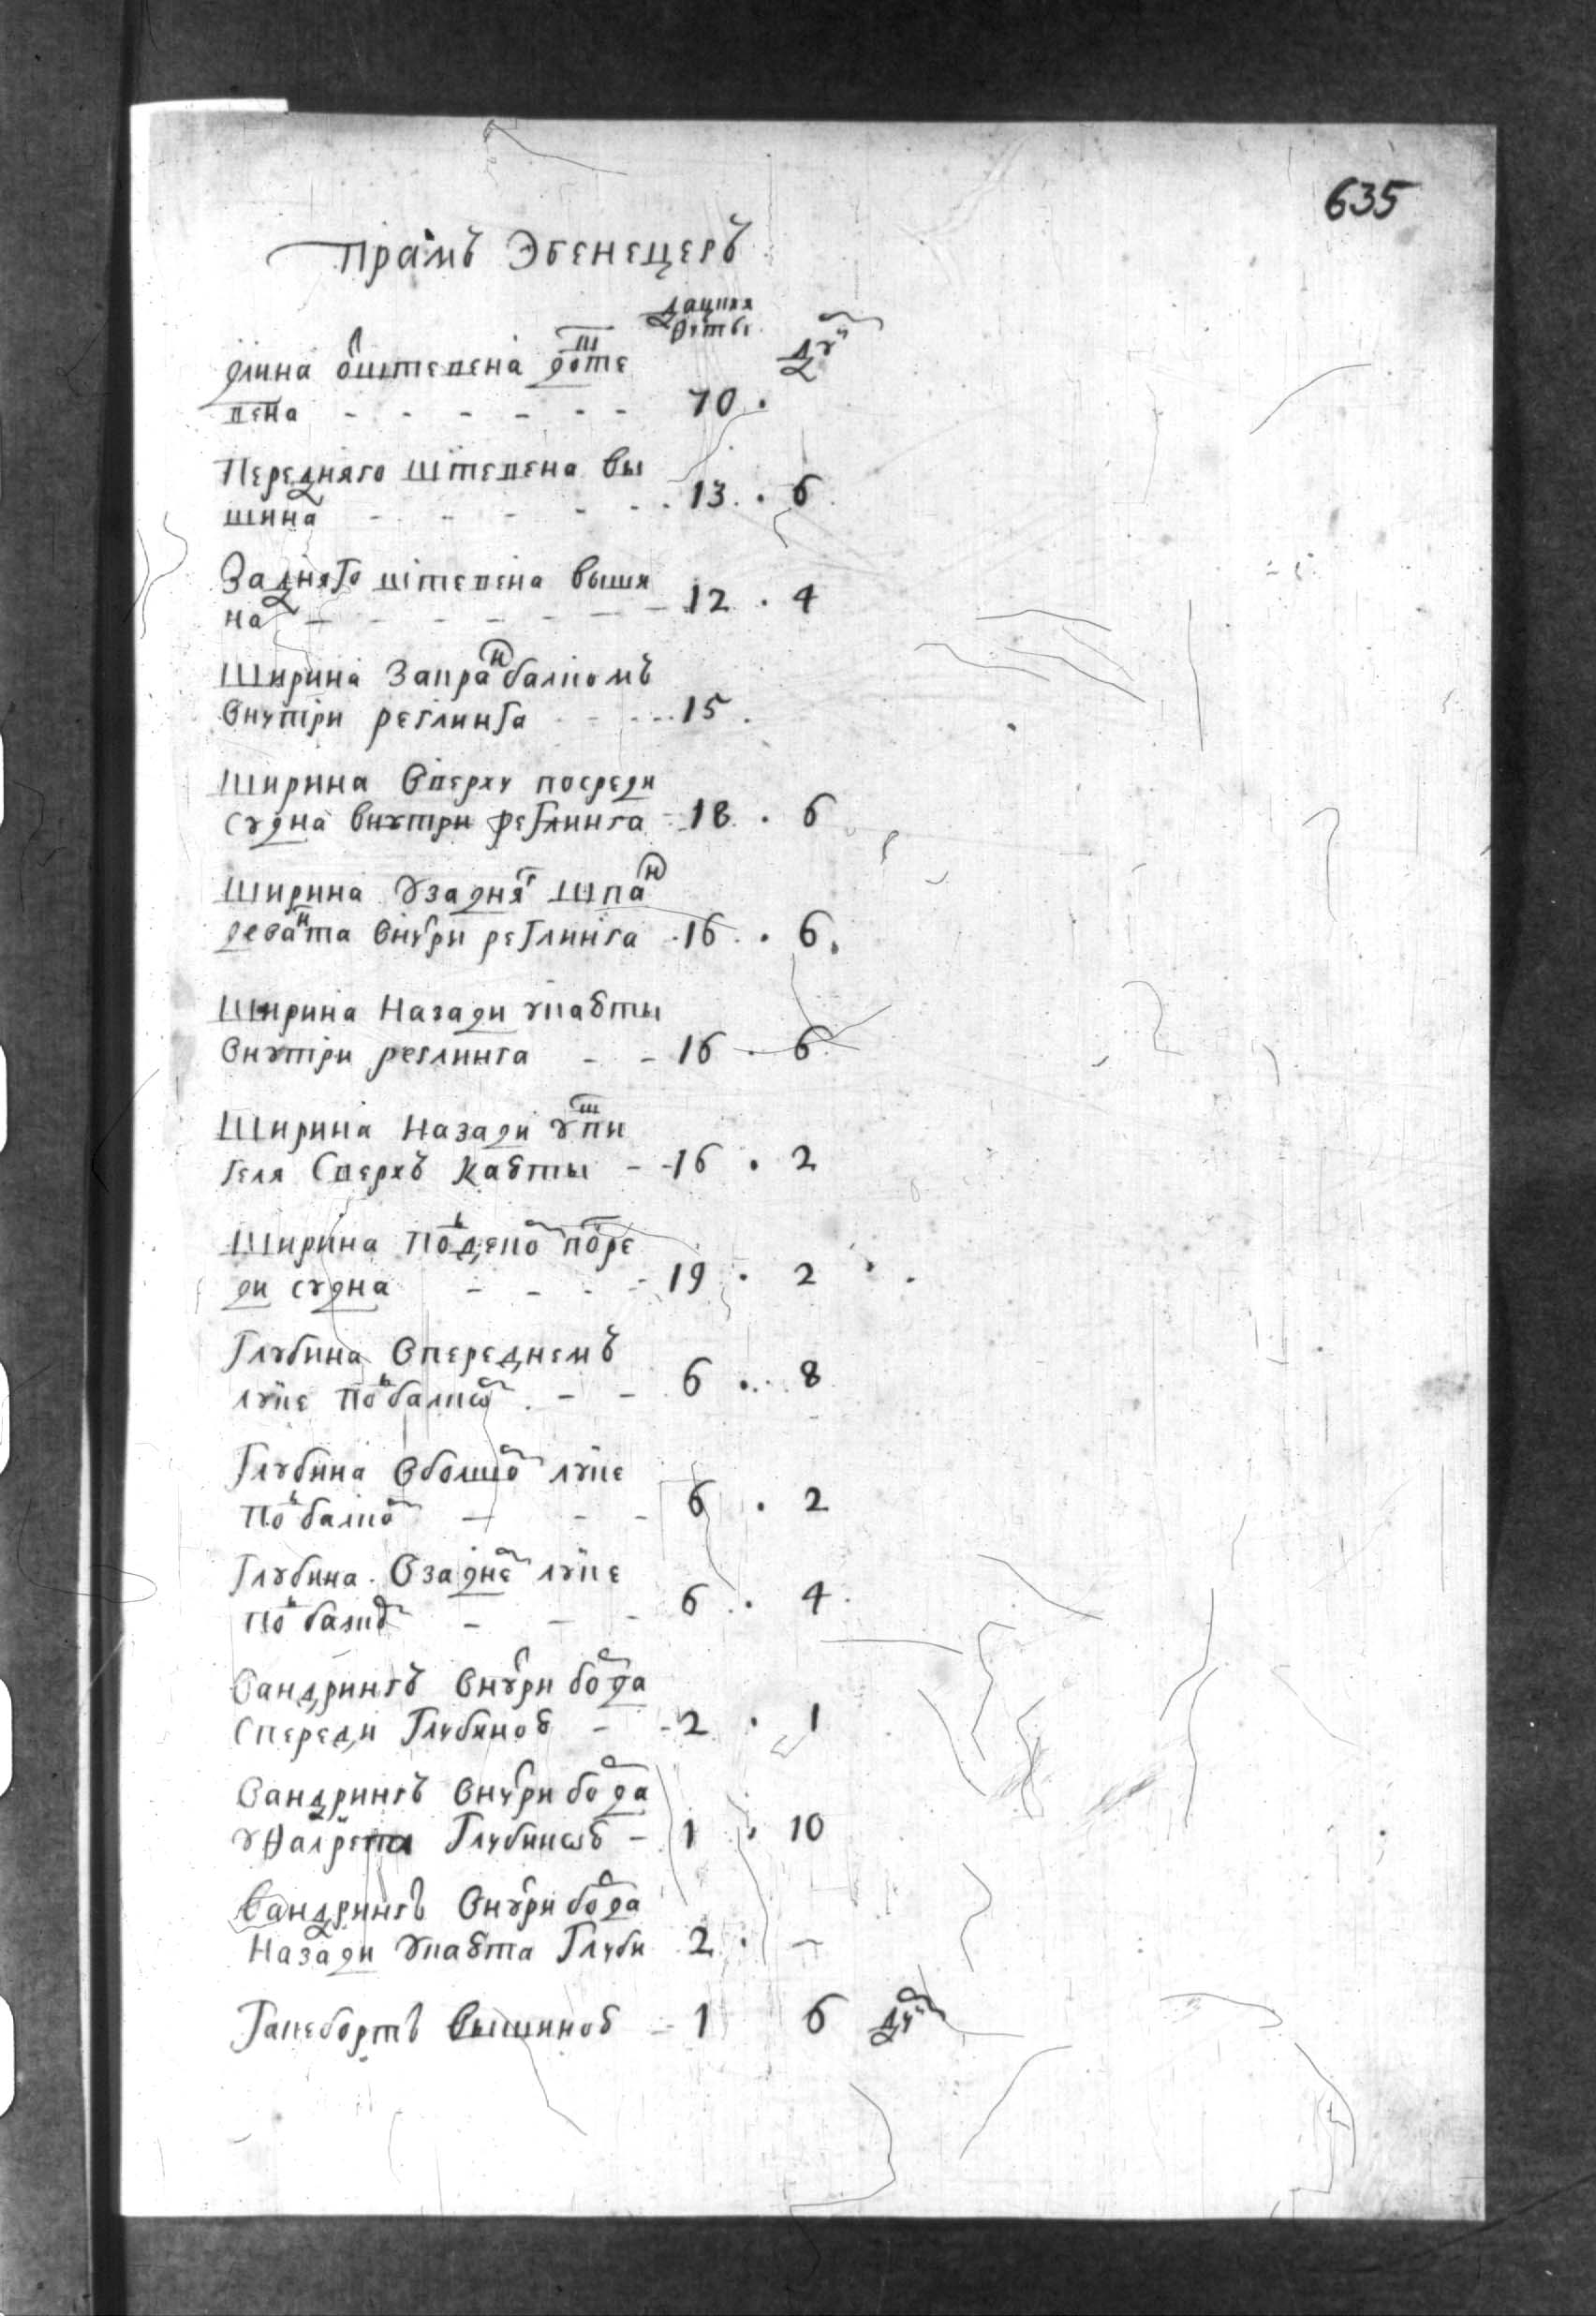 635
Прамъ Эбенецеръ
дацкия
футы
дюй
длина отштевена доште
вена - - - - - - 70 .
Передняго штевена вы
шина - - - - - . 13 . 6
Задняго штевена выши
на - - - - - - - 12 . 4
Ширина Запран балкомъ
внутри реглинга - - - 15 .
Ширина Вверху посреди
судна внутри реглинга - 18 . 6
Ширина Узадняг шпан
девата внутри реглинга - 16 . 6
Ширина Назади укаюты
внутри реглинга - - 16 . 6
Ширина Назади ушпи
геля Сверхъ каюты - - 16 . 2
Ширина Поддеко посре
ди судна - - - - 19 . 2
Глубина Впереднемъ
люке Подбалком - - 6 . 8
Глубина Вболшом люке
Подбалком - - - 6 . 2
Глубина Взаднем люке
Подбалком - - - 6 . 4
Вандрингъ Внутри борда
Спереди Глубиною - - 2 . 1
Вандрингъ Внутри борда
уфалрепа Глубиною - 1 . 10
Вандрингъ Внутри борда
Назади Укаюта Глуби 2 . -
Гакебортъ вышиною - 1 6 дюй